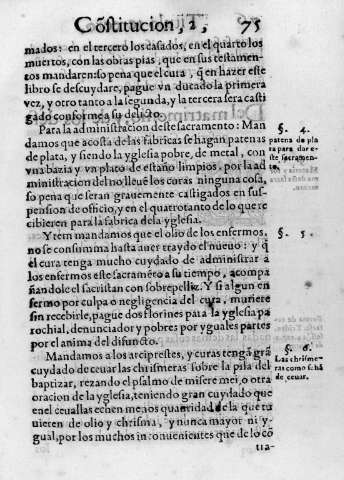 Cõstitucion, 2, 75
mados: en el tercero los casados, en el quarto los
muertos, con las obras pias, que en sus testamen-
tos mandaren: so pena que el cura, q̃ en hazer este
libro se descuydare, pague vn ducado la primera
vez, y otro tanto a la segunda, y la tercera sera casti
gado conforme a su delicto.
Para la administracion deste sacramento: Man
damos que a costa de las fabricas se hagan patenas
de plata, y siendo la yglesia pobre, de metal, con
vna bazia y vn plato de estaño limpios. por la ad
ministracion del no lleuē los curas ninguna cosa,
so pena que seran grauemente castigados en sus-
pension de officio, y en el quatrotanto de lo que re
cibieren para la fabrica de la yglesia.
§. 4.
patena de pla
ta para dar e-
ste sacramen-
to.
Y tem mandamos que el olio de los enfermos,
no se consumma hasta auer traydo el nueuo: y q̃
el cura tenga mucho cuydado de administrar a
los enfermos este sacramēto a su tiempo, acompa
ñandole el sacristan con sobrepelliz. Y si algun en
fermo por culpa o negligencia del cura, muriere
sin recebirle, pague dos florines para la yglesia pa
rochial, denunciador y pobres por yguales partes
por el anima del difuncto.
§. 5.
Mandamos a los arciprestes, y curas tengã grã
cuydado de ceuar las chrismeras sobre la pila del
baptizar, rezando el psalmo de miserere mei, o otra
oracion de la yglesia, teniendo gran cuydado que
en el ceuallas echen menos quantidad de la que tu
uieren de olio y chrisma, y nunca mayor ni y-
gual, por los muchos inconuenientes que de lo cõ
§. 6.
Las chrisme-
ras como se hã
de ceuar.
tra-